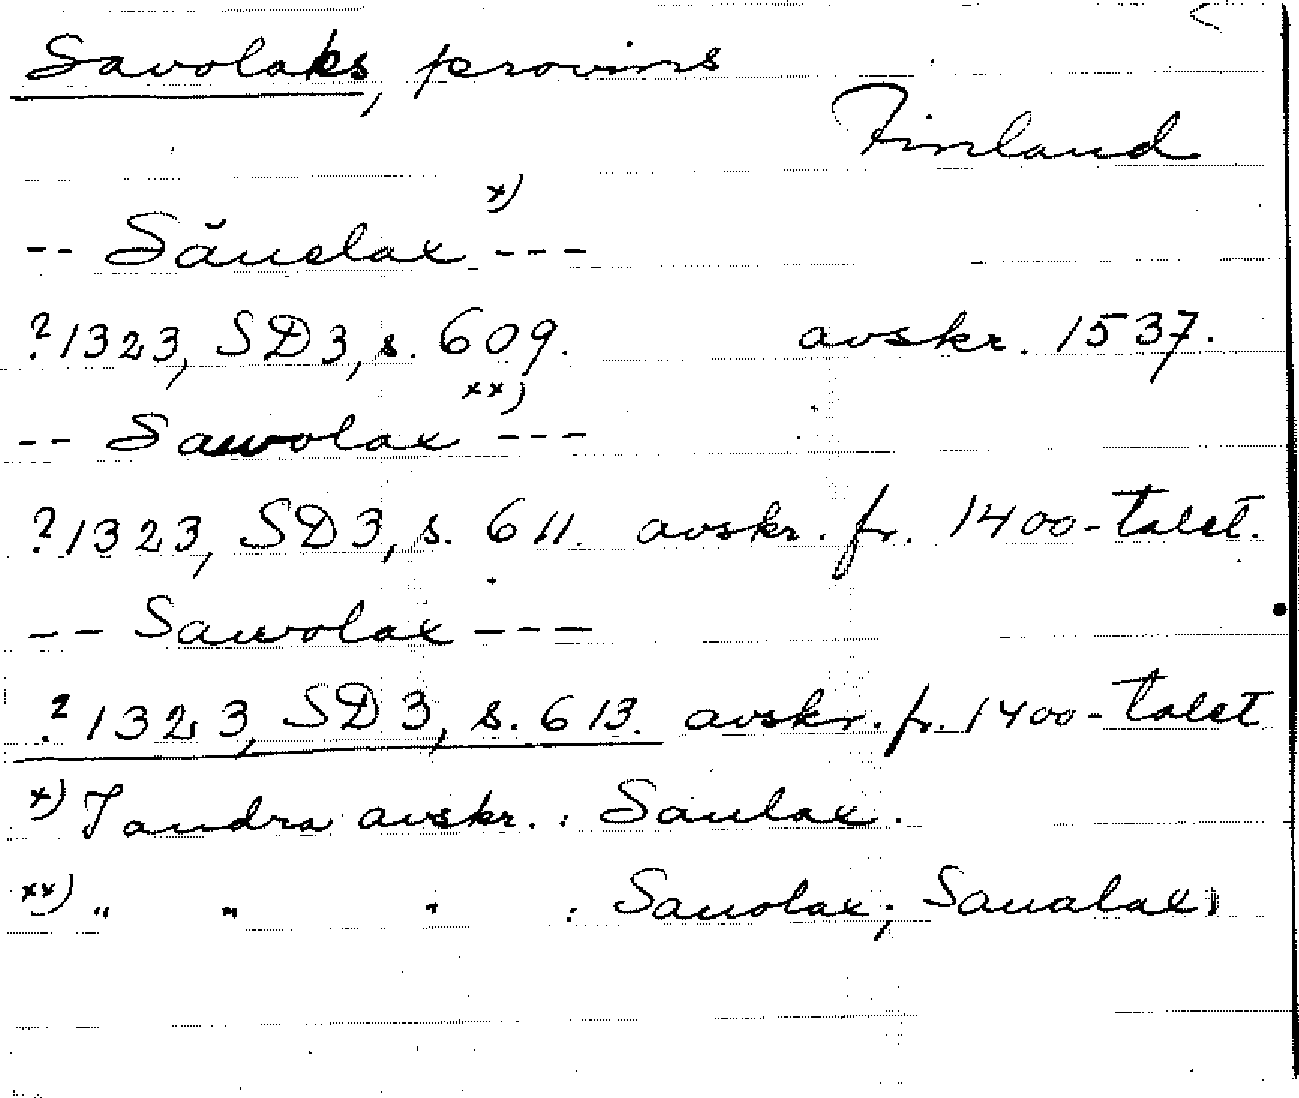 Savolaks, provins
Finland
-- Săuolax x) ---
?1323, SD3, s. 609. avskr. 1537.
-- Sawolax xx) ---
?1323, SD3, s. 611. avskr. fr. 1400-talet.
-- Sawolax ---
?1323, SD3, s. 613. avskr. fr. 1400-talet
x) I andra avskr. : Saulax.
xx) " " " : Sauolax; Saualax.